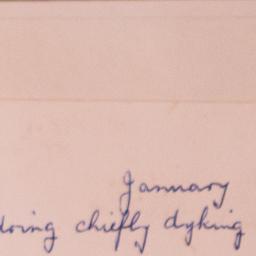 January
doing chiefly dyking